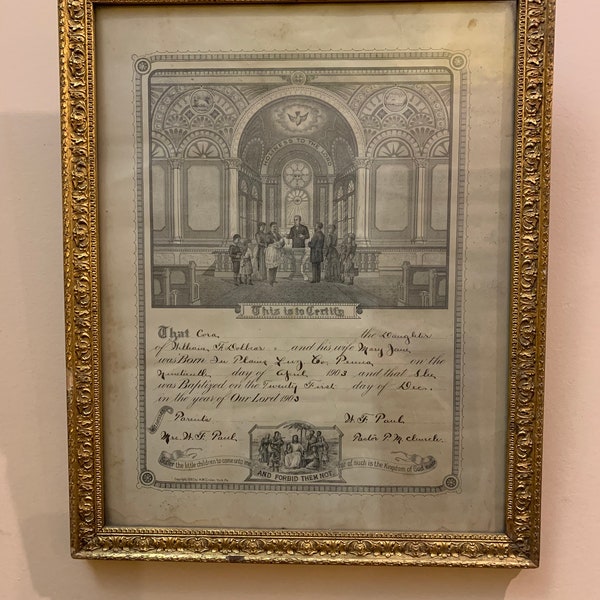 HOLINESS TO THE LORD
This is to Certify
That Cora the Daughter
of William F. Collier and his wife Mary Jane
was Born In Plains, Luz Co, Penna on the
Nineteenth day of April 1903 and that She
was Baptized on the Twenty First day of Dec.
in the year of Our Lord 1903
Parents W. F. Paul
Mrs. W. F. Paul. Pastor P. M. Church.
the little children to come unto me for of such is the Kingdom of God
AND FORBID THEM NOT
Copyright York, Pa.